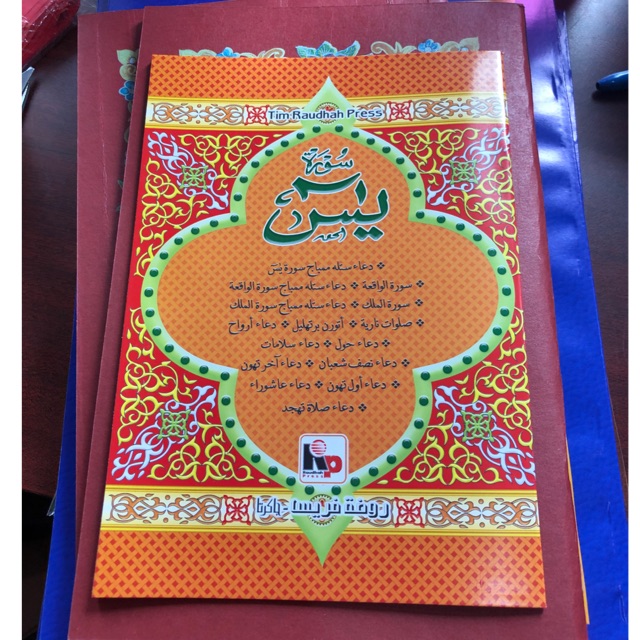 Tim Raudhah Press
سورة
يٰسٓ
❖ دعاء سٮله ممباچ سورة يٰسٓ
❖ سورة الواقعة ❖ دعاء سٮله ممباچ سورة الواقعة
❖ سورة الملك ❖ دعاء سٮله ممباچ سورة الملك
❖ صلوات نارية ❖ أتورن برتهليل ❖ دعاء أرواح
❖ دعاء حول ❖ دعاء سلامات
❖ دعاء نصف شعبان ❖ دعاء آخر تهون
❖ دعاء أول تهون ❖ دعاء عاشوراء
❖ دعاء صلاة تهجد
Rp
Raudhah
Press
روضة فريسـ - جاكرتا